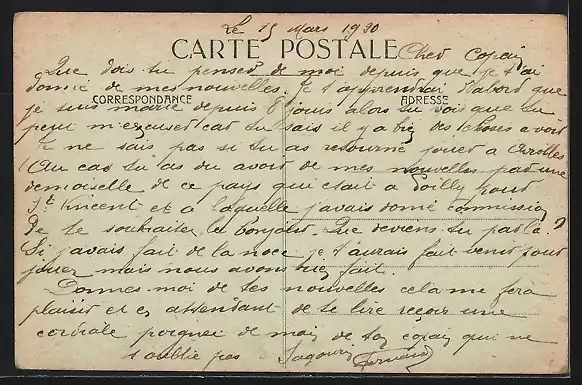 Le 15 Mars 1930
CARTE POSTALE
Cher Copain
Que dois tu penser de moi depuis que je t'ai
donné de mes nouvelles. Je t'apprendrai d'abord que
CORRESPONDANCE
ADRESSE
je suis marié depuis 8 jours alors tu vois que tu
peut m'excuser car tu sais il y a bien des choses a voir
Je ne sais pas si tu as retourné jouer a
Au cas tu as du avoir de mes nouvelles par une
demoiselle de ce pays qui était a Doilly pour
St Vincent et a laquelle j'avais donné commission
De te souhaiter le bonjour. Que deviens tu par là ?
Si j'avais fait de la noce je t'aurais fait venir pour
jouer mais nous avons rien fait.
Donnes moi de tes nouvelles cela me fera
plaisir et en attendant de te lire reçoir une
cordiale poignee de main de ton copain qui ne
t'oublie pas Fernand